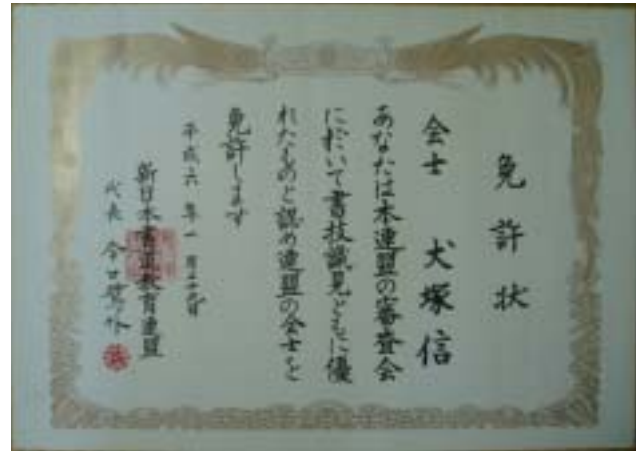 免許状
会士 犬塚信
あなたは本連盟の審査会
において書技識見ともに優
れたものと認め連盟の会士を
免許します
平成六年一月
新日本書道教育連盟
代表